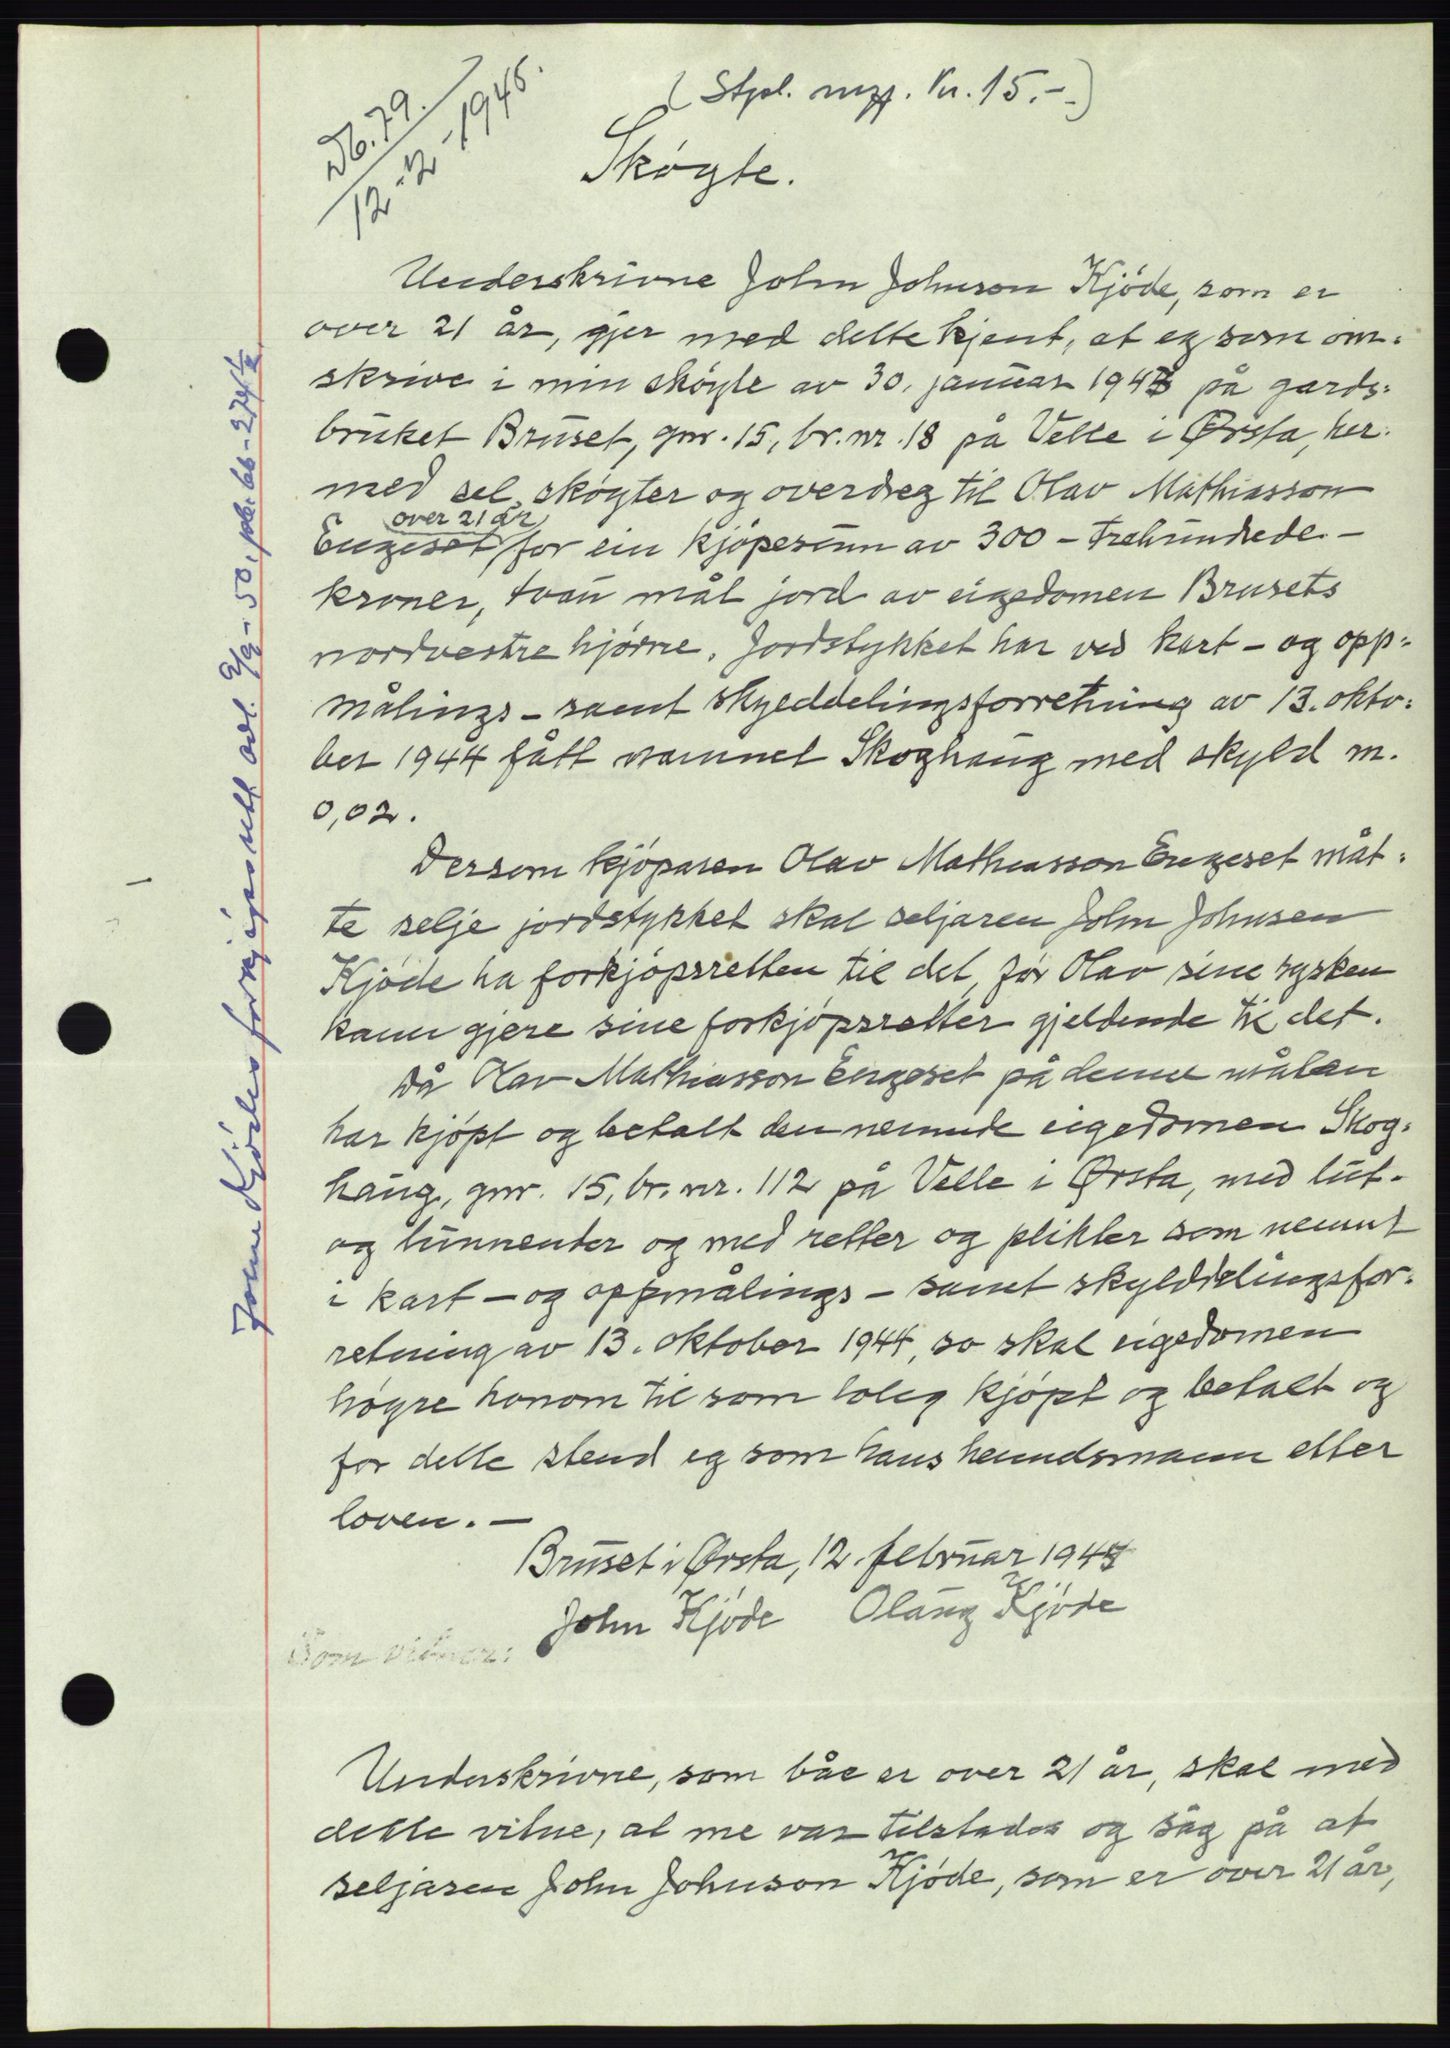 (Stpl. mrk. Kr. 15.-.)
Db. 79.
12-2-1945.
Skøyte.
Underskrivne John Johnson Kjøde, som er
over 21 år, gjer med dette kjent, at eg som om=
skrive i min skøyte av 30. januar 1943 på gards=
bruket Bruset, gnr. 15, br. nr. 18 på Velle i Ørsta, her=
med sel, skøyter og overdreg til Olav Mathiasson
over 21 år
Engeset for ein kjøpesum av 300 - trehundrede -
kroner, tvau mål jord av eigedomen Brusets
nordvestre hjørne. Jordstykket har ved kart- og opp=
målings- samt skylddelingsforretning av 13. okto=
ber 1944 fått namnet Skoghaug med skyld m.
0,02.
Dersom kjøparen Olav Mathiasson Engeset måt=
te selje jordstykket skal seljaren John Johnsen
Kjøde ha forkjøpsretten til det, før Olav sine sysken
kann gjere sine forkjøpsretter gjeldende til det.
Då Olav Mathiasson Engeset på denne måten
har kjøpt og betalt den nemnde eigedomen Skog=
haug, gnr. 15, br. nr. 112 på Velle i Ørsta, med lut-
og lunnender og med retter og plikter som nemnt
i kart- og oppmålings- samt skylddelingsfor=
retning av 13. oktober 1944, so skal eigedomen
høyre honom til som loleg kjøpt og betalt og
for dette stend eg som hans heimelsmann etter
loven. -
Bruset i Ørsta, 12. februar 1945
John Kjøde Olaug Kjøde
Som vitner:
Underskrivne, som båe er over 21 år, skal med
dette vitne, at me var tilstades og såg på at
seljaren John Johnson Kjøde, som er over 21 år,
John Kjødes forkjøpsrett avl. 2/9-50, pb. 66-274